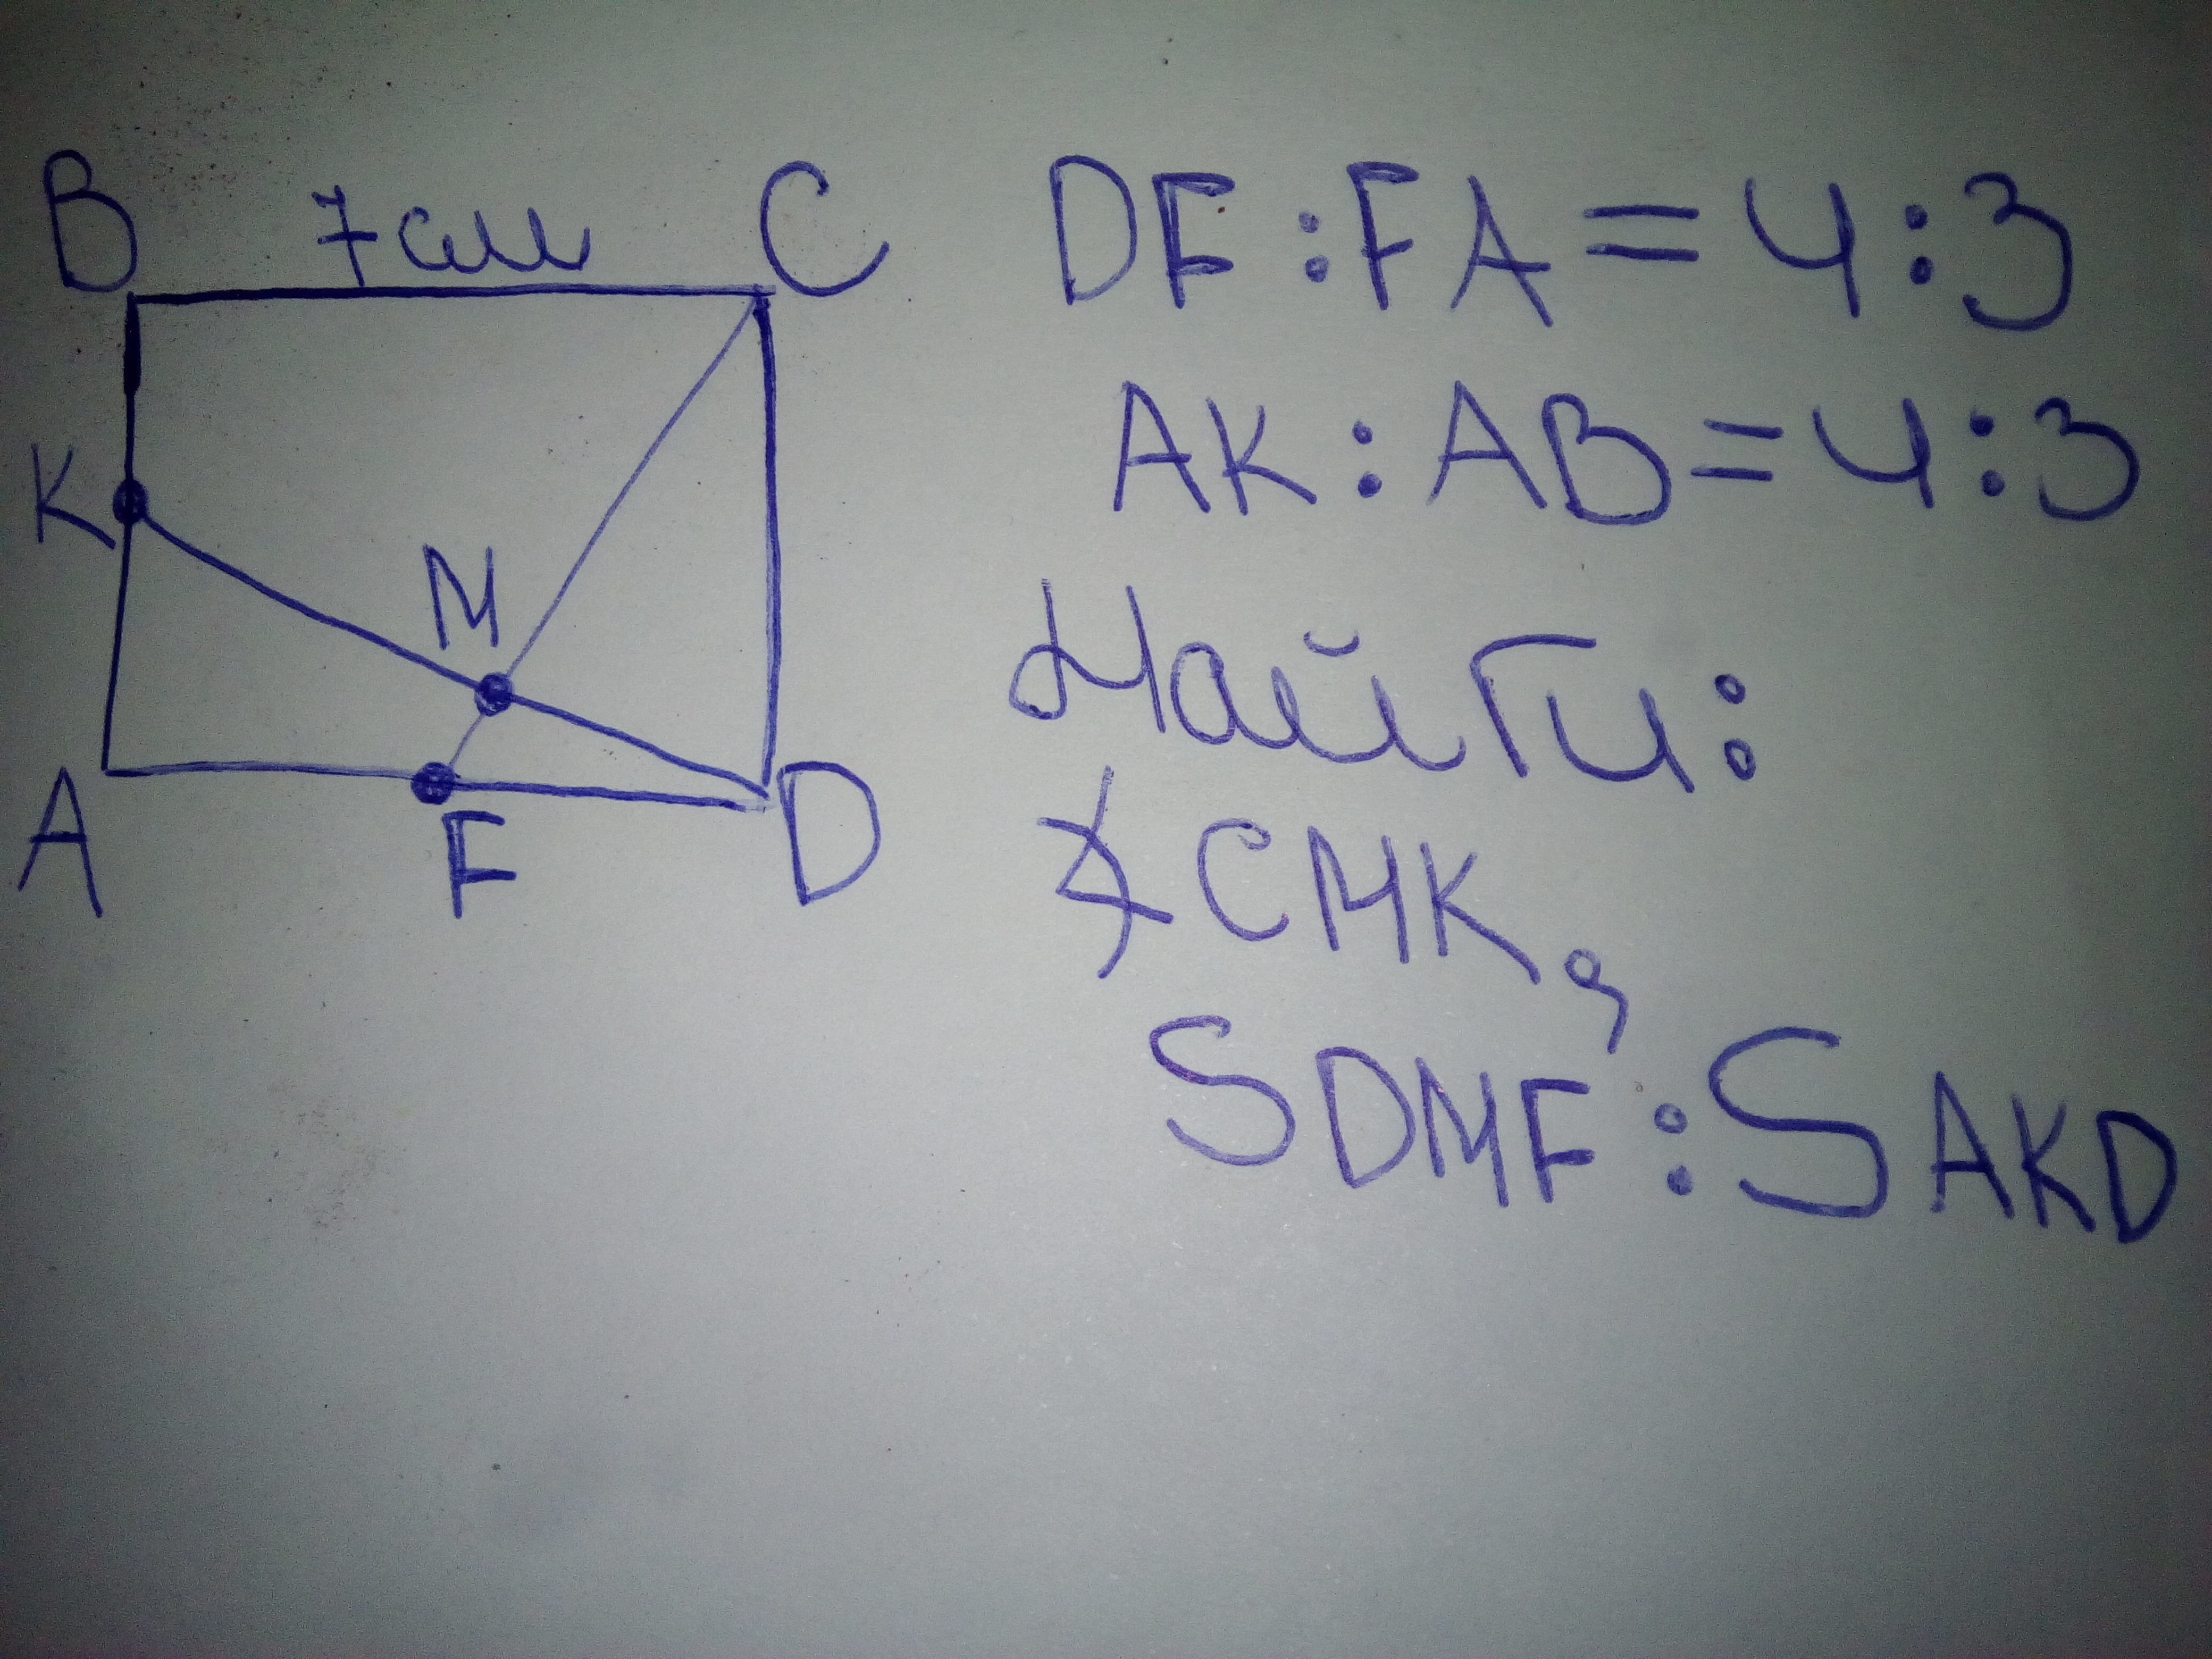 B 7см C
K
M
A
F
D
DF : FA = 4 : 3
AK : AB = 4 : 3
Найти:
∡ CMK,
SDMF : SAKD